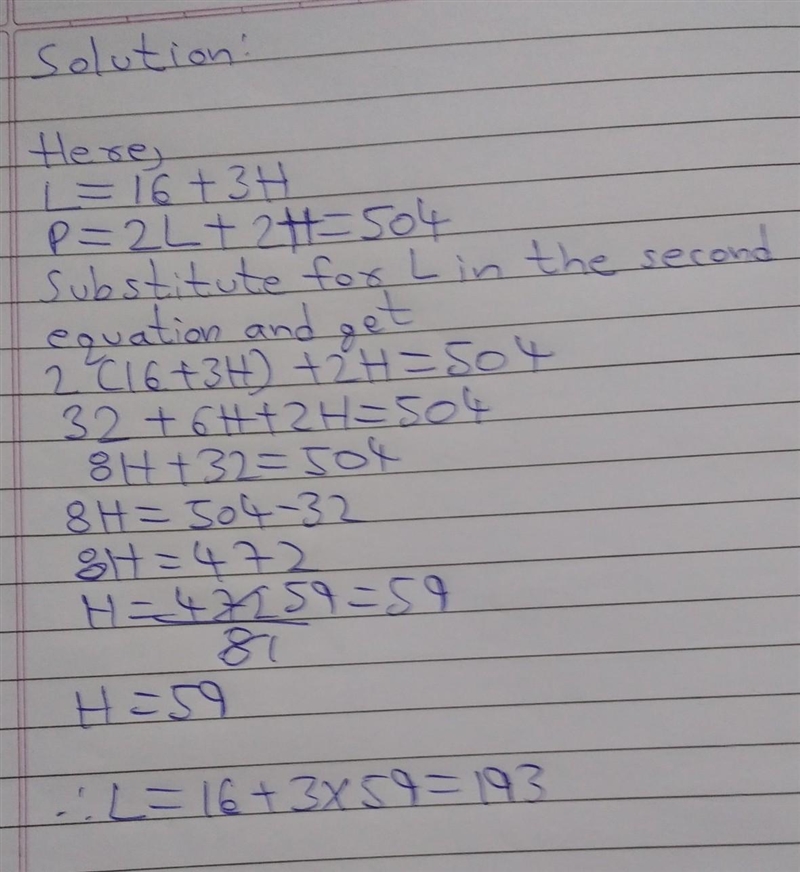 Solution:
Here,
L=16+3H
P=2L+2H=504
Substitute for L in the second
equation and get
2(16+3H)+2H=504
32+6H+2H=504
8H+32=504
8H=504-32
8H=472
H=472 59=59
81
H=59
∴L=16+3×59=193